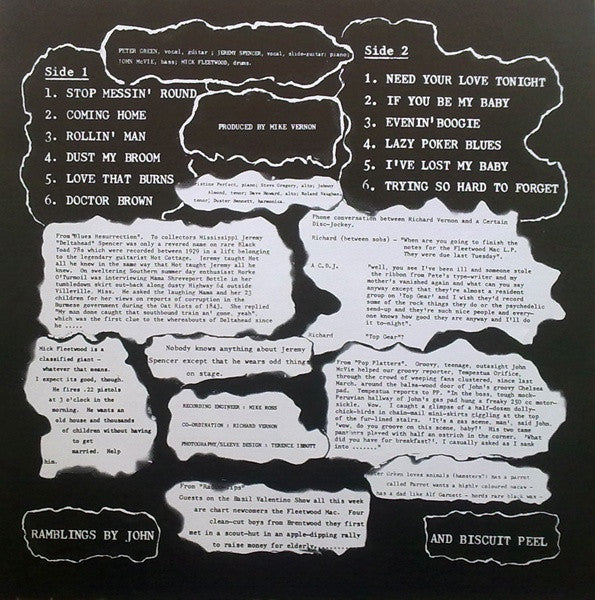 PETER GREEN, vocal, guitar ; JEREMY SPENCER, vocal, slide-guitar; piano;
JOHN McVIE, bass; MICK FLEETWOOD, drums.
Side 1
1. STOP MESSIN' ROUND
2. COMING HOME
3. ROLLIN' MAN
4. DUST MY BROOM
5. LOVE THAT BURNS
6. DOCTOR BROWN
PRODUCED BY MIKE VERNON
Side 2
1. NEED YOUR LOVE TONIGHT
2. IF YOU BE MY BABY
3. EVENIN' BOOGIE
4. LAZY POKER BLUES
5. I'VE LOST MY BABY
6. TRYING SO HARD TO FORGET
ristine Perfect, piano; Steve Gregory, alto; Johnny
Almond, tenor; Dave Howard, alto; Roland Vaughan,
tenor; Duster Bennett, harmonica.
From "Blues Resurrection". To collectors Mississippi Jeremy
"Deltahead" Spencer was only a revered name on rare Black
Toad 78s which were recorded between 1929 in a lift belonging
to the legendary guitarist Hot Cottage. Jeremy taught Hot
all he knew in the same way that Hot taught Jeremy all he
knew. On sweltering Southern summer day enthusiast Rorke
O'Turmoil was interviewing Mama Shreveport Bottle in her
tumbledown skirt out-back along dusty Highway 64 outside
Villeville, Miss. He asked the laughing Mama and her 23
children for her views on reports of corruption in the
Burmese government during the Oat Riots of 1843. She replied
"My man done caught that southbound train an' gone, yeah",
which was the first clue to the whereabouts of Deltahead since
he .....
Phone conversation between Richard Vernon and a Certain
Disc-Jockey.
Richard (between sobs) - "When are you going to finish the
notes for the Fleetwood Mac L.P.
They were due last Tuesday".
A C.D.J. "well, you see I've been ill and someone stole
the ribbon from Pete's type-writer and my
mother's vanished again and what can you say
anyway except that they're almost a resident
group on 'Top Gear' and I wish they'd record
some of the rock things they do or the psychedelic
send-up and they're such nice people and every-
one knows how good they are anyway and I'll do
it to-night".
Richard "Top Gear"?
Mick Fleetwood is a
classified giant -
whatever that means.
I expect its good, though.
He fires .22 pistols
at 3 o'clock in the
morning. He wants an
old house and thousands
of children without having
to get
married. Help
him.
Nobody knows anything about jeremy
Spencer except that he wears odd things
on stage.
RECORDING ENGINEER : MIKE ROSS
CO-ORDINATION : RICHARD VERNON
PHOTOGRAPHY/SLEEVE DESIGN : TERENCE IBBOTT
From "Pop Platters". Groovy, teenage, outasight John
McVie helped our groovy reporter, Tempestua Orifice,
through the crowd of weeping fans clustered, since last
March, around the balsa-wood door of John's groovy Chelsea
pad. Tempestua reports to PP. "In the boss, tough mock-
Peruvian hallway of John's gas pad hung a freaky 250 cc motor-
sickle. Wow. I caught a glimpse of a half-dozen dolly-
chick-birds in chain-mail mini-skirts giggling at the top
of the fur-lined stairs. 'It's a gas scene, man', said John.
'wow, do you groove on this scene, baby?' His two tame
panthers played with half an ostrich in the corner. 'What
did you have for breakfast?', I casually asked as I sank
into .......
Peter Green loves animals (hamsters?) Has a parrot
called Parrot wants a highly coloured macaw -
has a dad like Alf Garnett - hords rare black wax -
From
Guests on the Basil Valentino Show all this week
are chart newcomers the Fleetwood Mac. Four
clean-cut boys from Brentwood they first
met in a scout-hut in an apple-dipping rally
to raise money for elderly...........
RAMBLINGS BY JOHN
AND BISCUIT PEEL